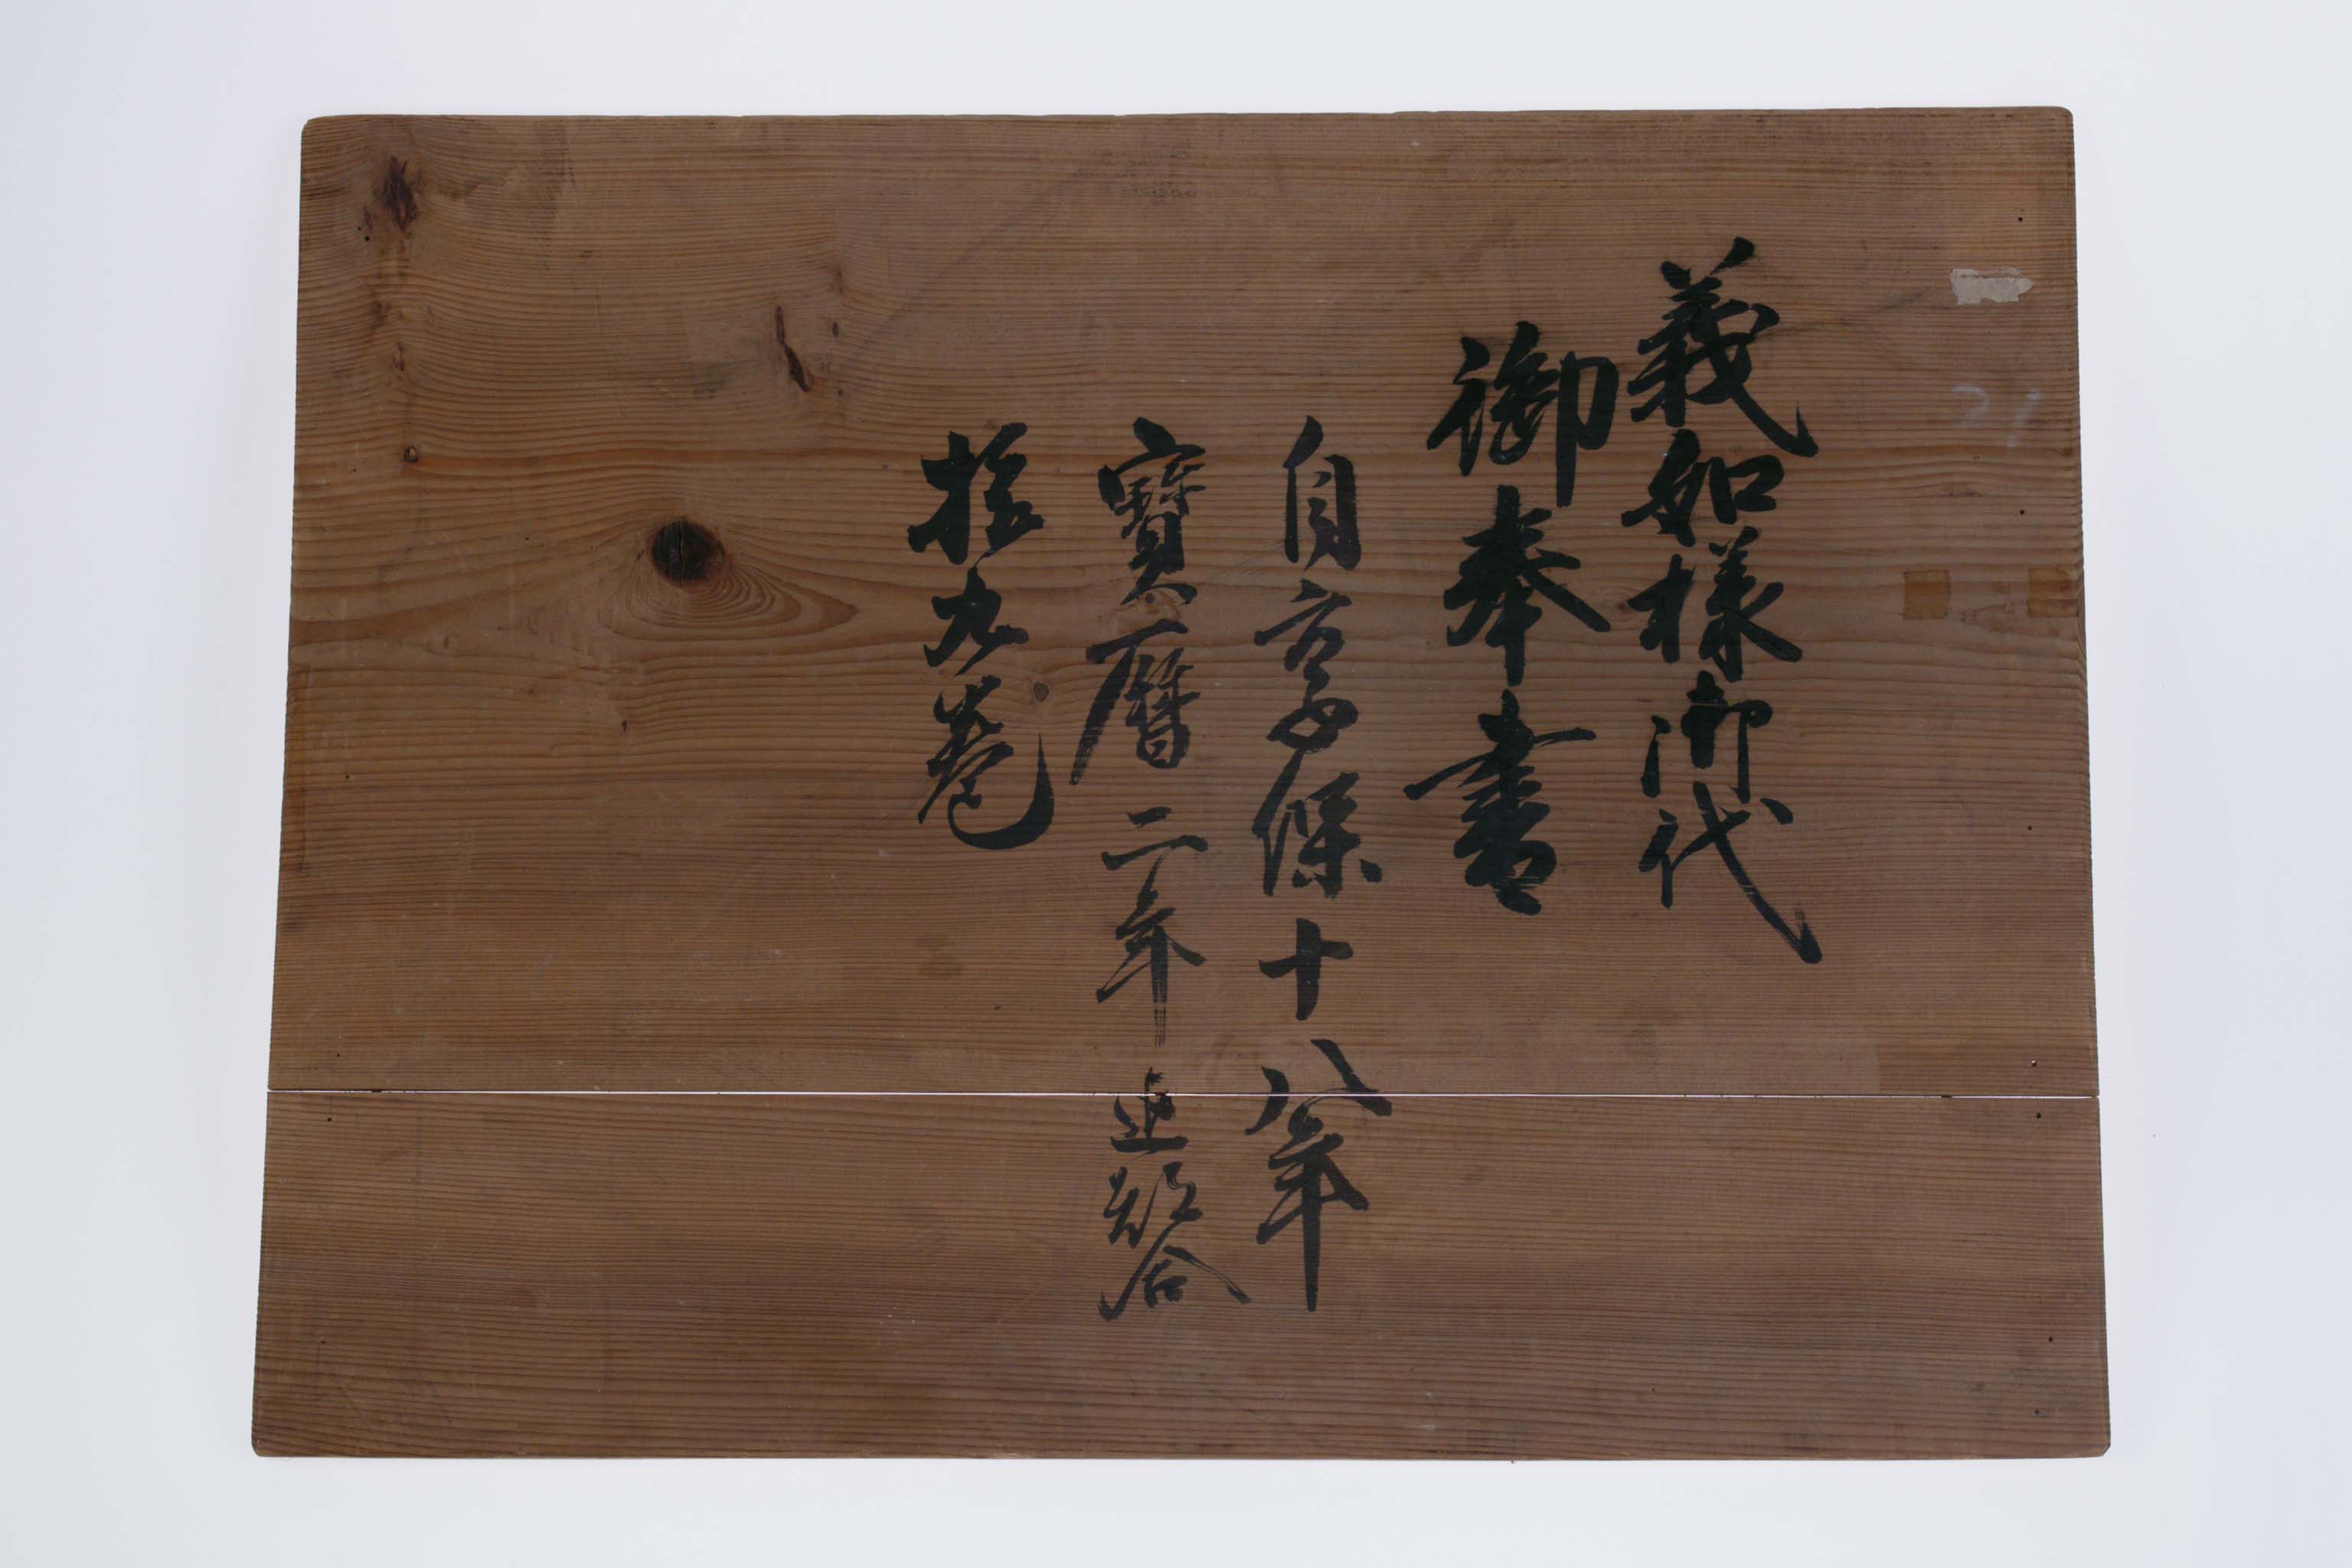 義如様御代
御奉書
自享保十八年
寶暦二年迄都合
拾九巻
21